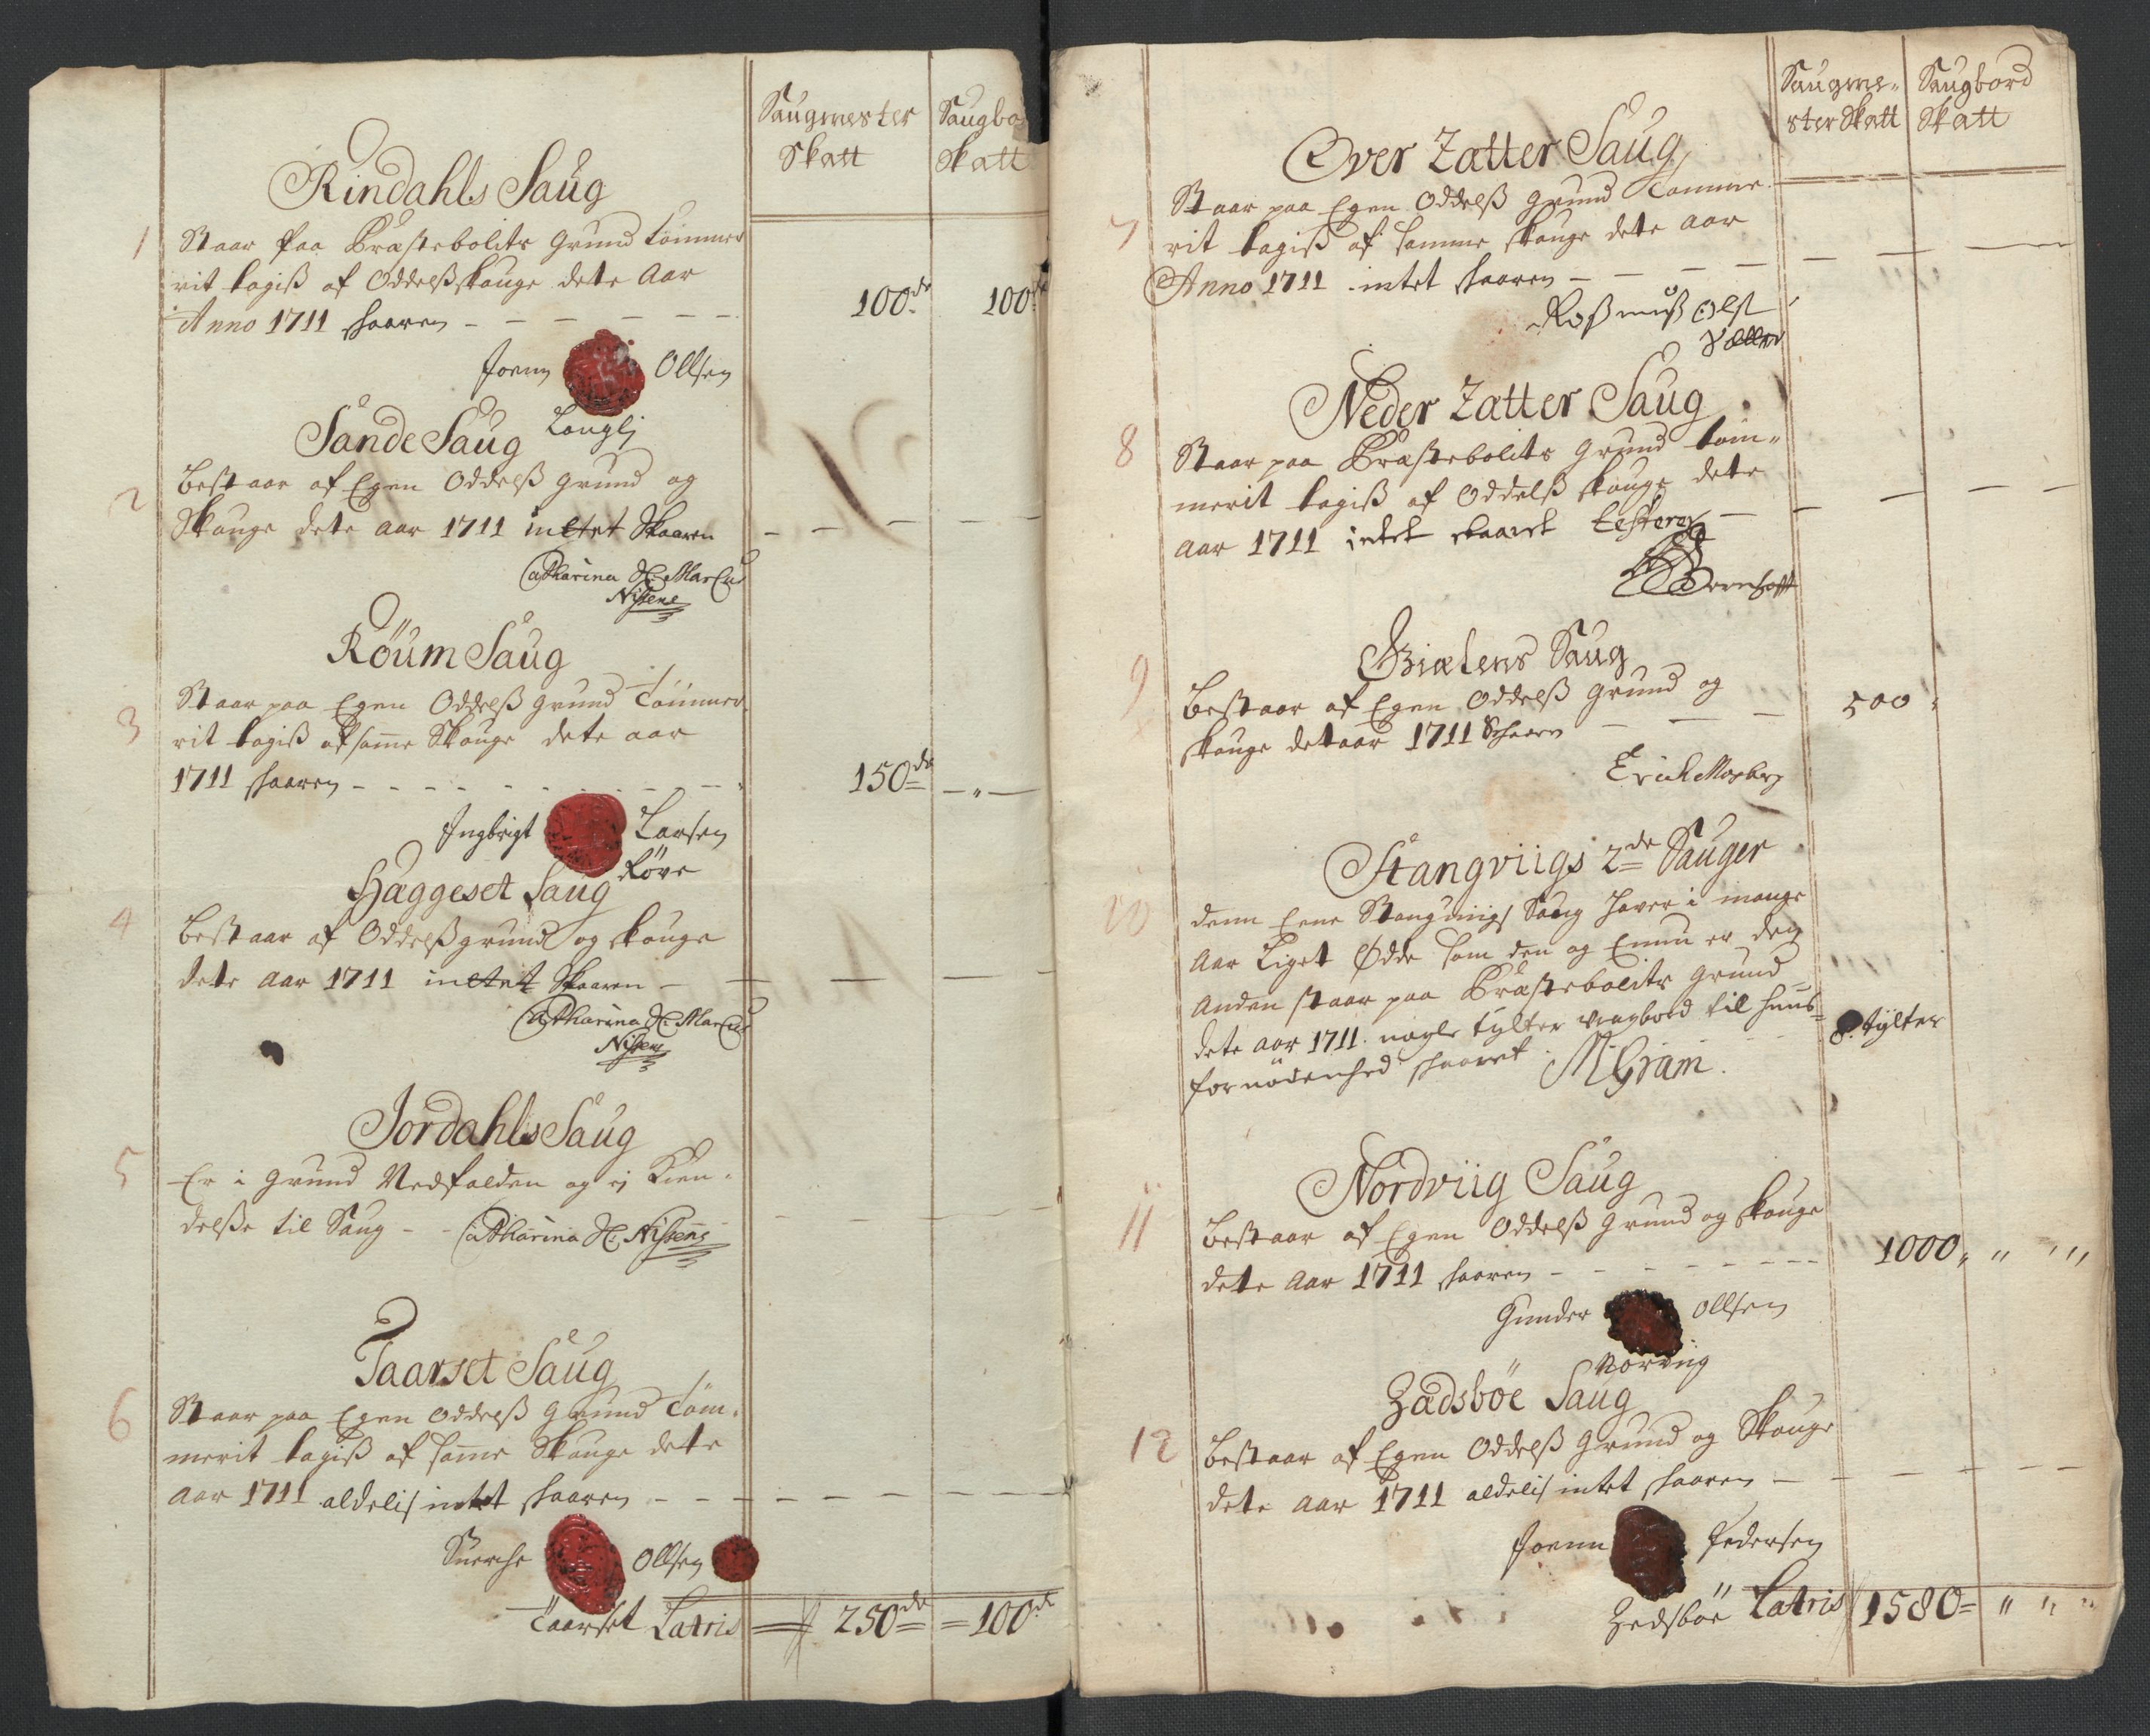 Saugmester
Skatt
Saugbo
Skatt
Rindahls Saug
1
Staar paa Præstebolits Grund Tømmer
rit tagiß af Oddelßskouge dete Aar
Anno 1711 skaaren
100de
100de
Joenn Ollsen
Langlj
Sande Saug
2
bestaar af Egen Oddelß grund og
Skouge dete aar 1711 intet Skaaren
Catharina Sl. Marcus
Nissens
Röum Saug
3
Staar paa Egen Oddelß grund Tömmer
rit tagiß af same Skouge dete aar
1711 skaaren
150de
Ingbrigt Larsen
Röve
Hæggeset Saug
4
bestaar af Oddelßgrund og skouge
dete aar 1711 intet Skaaren
Catharina Sl. Marcus
Nissens
Jordahls Saug
5
Er i grund Nedfalden og ej Kien-
delße til Saug
Catharina Sl. Nissens
Taarset Saug
6
Staar paa Egen Oddelß Grund Tøm-
merit tagiß af same Skouge dete
aar 1711 aldelis intet skaaren
Suerche Ollsen
Taarset
Latris 250de 100de
Saugme-
ster Skatt
Saugbord
Skatt
Over Zatter Saug
7
Staar paa Egen Oddelß grund Tømme
rit tagiß af samme skouge dete aar
Anno 1711 intet skaaren
Raßmuß Olß
Neder Zatter Saug
8
Staar paa Præstebolits grund tøm-
merit tagiß af Oddelß skouge dete
aar 1711 intet skaaret testerer
Giælens Saug
9
bestaar af Egen Oddelß grund og
skouge det aar 1711 Skaaren
500
Erich Mosberg
Stangviigs 2de Sauger
10
denn Eene Stangviigs Saug haver i mange
Aar Liget Ødde som den og Ennu er den
Anden staar paa Præstebolits Grund
dete aar 1711. nogle tylter vragbord til huus-
fornødenhed skaaret
8. tylter
M Gram.
Nordviig Saug
11
bestaar af Egen Oddelß Grund og skouge
dete Aar 1711 skaaren
1000
Gunder Ollsen
Norviig
Zadsböe Saug
12
bestaar af Egen Oddelß Grund og Skouge
dete aar 1711 aldelis intet skaaren
Joenn Pedersen
Zedsböe
Latris 1580